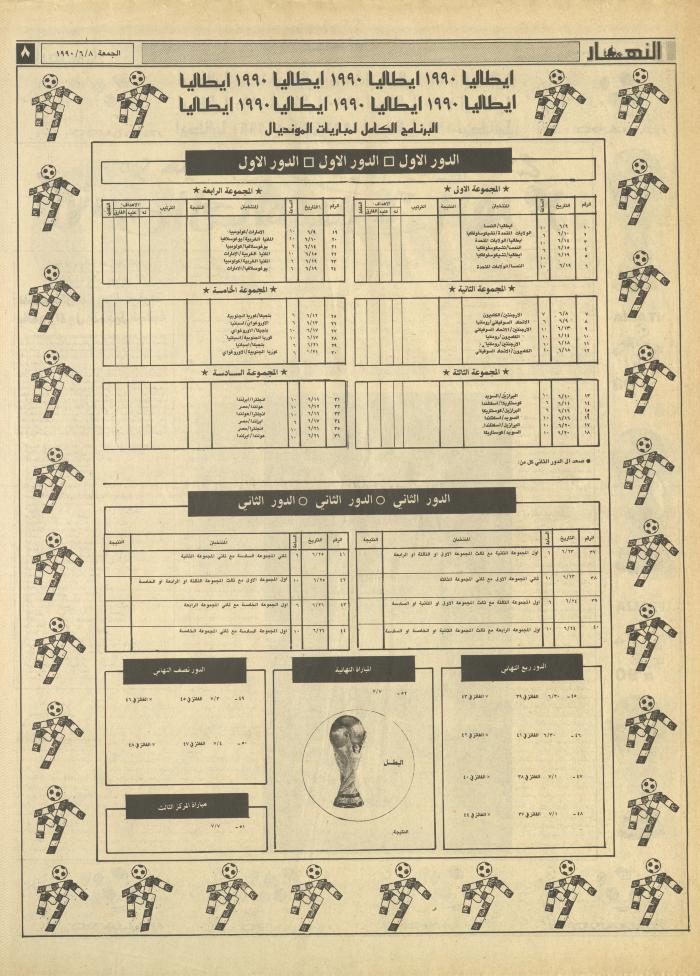 النهار
الجمعة ١٩٩٠/٦/٨
٨
ايطاليا ١٩٩٠ ايطاليا ١٩٩٠ ايطاليا ١٩٩٠ ايطاليا
ايطاليا ١٩٩٠ ايطاليا ١٩٩٠ ايطاليا ١٩٩٠ ايطاليا
البرنامج الكامل لمباريات المونديال
الدور الاول □ الدور الاول □ الدور الاول
★ المجموعة الاولى ★
الرقم التاريخ الساعة المنتخبان النتيجة الترتيب الاهداف النقاط
له عليه الفارق
ايطاليا/النمسا
الولايات المتحدة/تشيكوسلوفاكيا
ايطاليا/الولايات المتحدة
النمسا/تشيكوسلوفاكيا
ايطاليا/تشيكوسلوفاكيا
النمسا/الولايات المتحدة
★ المجموعة الرابعة ★
الرقم التاريخ الساعة المنتخبان النتيجة الترتيب الاهداف النقاط
له عليه الفارق
١٩ ٦/٩ الامارات/كولومبيا
٢٠ ٦/١٠ المانيا الغربية/يوغوسلافيا
٢١ ٦/١٤ يوغوسلافيا/كولومبيا
٢٢ ٦/١٥ المانيا الغربية/الامارات
٢٣ ٦/١٩ المانيا الغربية/كولومبيا
٢٤ ٦/١٩ يوغوسلافيا/الامارات
★ المجموعة الثانية ★
٧ ٦/٨ الارجنتين/الكاميرون
٨ ٦/٩ الاتحاد السوفياتي/رومانيا
٩ ٦/١٣ الارجنتين/الاتحاد السوفياتي
١٠ ٦/١٤ الكاميرون/رومانيا
١١ ٦/١٨ الارجنتين/رومانيا
١٢ ٦/١٨ الكاميرون/الاتحاد السوفياتي
★ المجموعة الخامسة ★
٢٥ ٦/١٢ بلجيكا/كوريا الجنوبية
٢٦ ٦/١٣ الاوروغواي/اسبانيا
٢٧ ٦/١٧ بلجيكا/الاوروغواي
٢٨ ٦/١٧ كوريا الجنوبية/اسبانيا
٢٩ ٦/٢١ بلجيكا/اسبانيا
٣٠ ٦/٢١ كوريا الجنوبية/الاوروغواي
★ المجموعة الثالثة ★
١٣ البرازيل/السويد
١٤ كوستاريكا/اسكتلندا
١٥ البرازيل/كوستاريكا
السويد/اسكتلندا
١٧ البرازيل/اسكتلندا
١٨ السويد/كوستاريكا
★ المجموعة السادسة ★
٣١ ٦/١١ انجلترا/ايرلندا
هولندا/مصر
انجلترا/هولندا
ايرلندا/مصر
انجلترا/مصر
هولندا/ايرلندا
● صعد الى الدور الثاني كل من:
الدور الثاني ○ الدور الثاني ○ الدور الثاني
الرقم التاريخ الساعة المنتخبان النتيجة
٣٧ ٦/٢٣ ٦ اول المجموعة الثانية مع ثالث المجموعة الاولى او الثالثة او الرابعة
٣٨ ٦/٢٣ ١٠ ثاني المجموعة الاولى مع ثاني المجموعة الثالثة
٣٩ ٦/٢٤ ٦ اول المجموعة الثالثة مع ثالث المجموعة الاولى او الثانية او السادسة
٤٠ ٦/٢٤ ١٠ اول المجموعة الرابعة مع ثالث المجموعة الثانية او الخامسة او السادسة
الرقم التاريخ الساعة المنتخبان النتيجة
٤١ ٦/٢٥ ٦ ثاني المجموعة السادسة مع ثاني المجموعة الثانية
٤٢ ٦/٢٥ ١٠ اول المجموعة الاولى مع ثالث المجموعة الثالثة او الرابعة او الخامسة
٤٣ ٦/٢٦ ٦ اول المجموعة الخامسة مع ثاني المجموعة الرابعة
٤٤ ٦/٢٦ ١٠ اول المجموعة السادسة مع ثاني المجموعة الخامسة
الدور ربع النهائي
٤٥ - ٦/٣٠ الفائز في ٣٩ × الفائز في ٤٣
٤٦ - ٦/٣٠ الفائز في ٤١ × الفائز في ٤٢
٤٧ - ٧/١ الفائز في ٣٨ × الفائز في ٤٠
٤٨ - ٧/١ الفائز في ٣٧ × الفائز في ٤٤
المباراة النهائية
٥٢ - ٧/٧
البطل
النتيجة:
الدور نصف النهائي
٤٩ - ٧/٣ الفائز في ٤٥ × الفائز في ٤٦
٥٠ - ٧/٤ الفائز في ٤٧ × الفائز في ٤٨
مباراة المركز الثالث
٥١ - ٧/٧